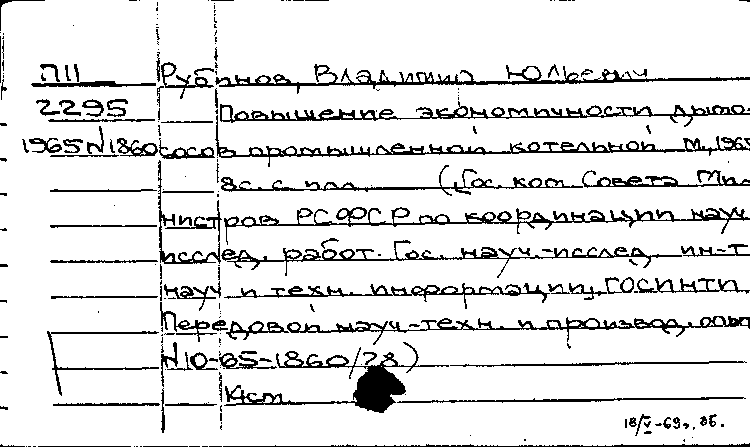 П11 Рубинов, Владимир Юльевич
2295 Повышение экономичности дымо-
1965 N1860 сосов промышленной котельной М., 1965
8с. с илл. (Гос. ком. Совета Ми-
нистров РСФСР по координации науч.
исслед. работ. Гос. науч.-исслед. ин-т
науч. и техн. информации. ГОСИНТИ.
Передовой науч.-техн. и производ. опыт
N10-65-1860/28)
1/V-69г.